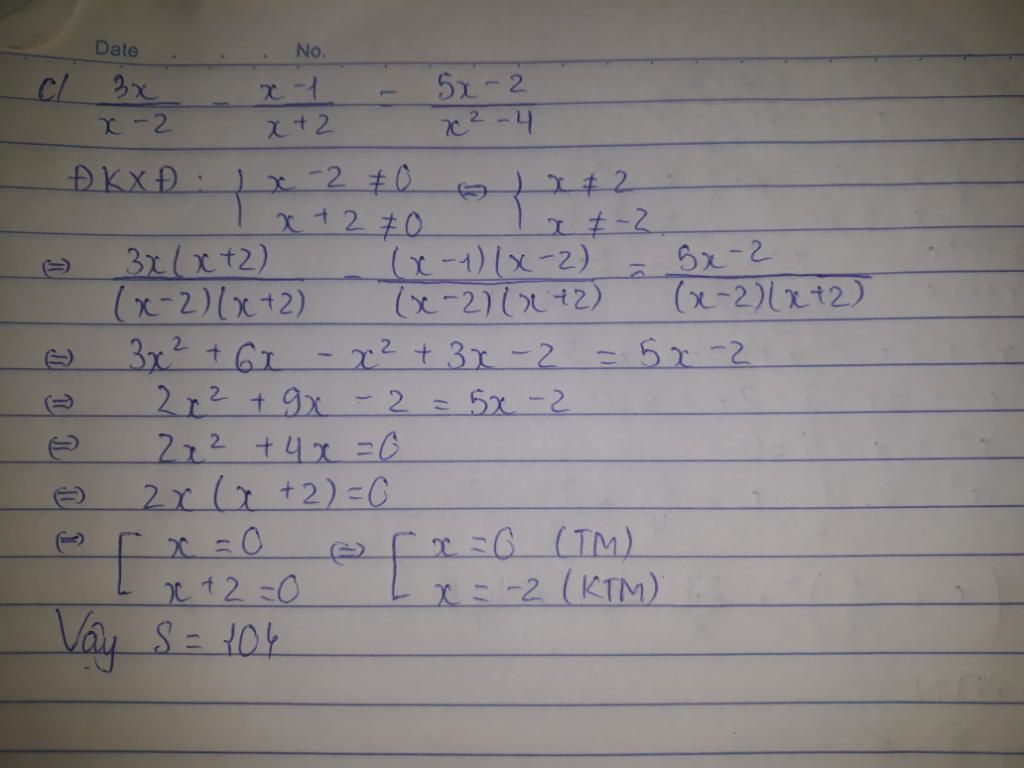 Date . . . No.
c/ 3x/(x-2) - (x-1)/(x+2) = (5x-2)/(x²-4)
ĐKXĐ: { x-2 ≠ 0 ⇔ { x ≠ 2
x+2 ≠ 0 x ≠ -2
⇔ 3x(x+2)/((x-2)(x+2)) - (x-1)(x-2)/((x-2)(x+2)) = (5x-2)/((x-2)(x+2))
⇔ 3x² + 6x - x² + 3x - 2 = 5x - 2
⇔ 2x² + 9x - 2 = 5x - 2
⇔ 2x² + 4x = 0
⇔ 2x(x+2) = 0
⇔ [ x = 0 ⇔ [ x = 0 (TM)
x+2 = 0 x = -2 (KTM)
Vậy S = {0}